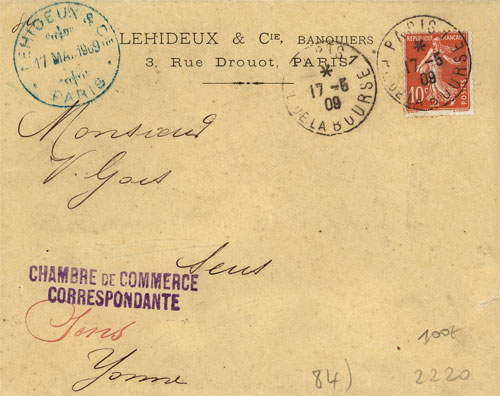 LEHIDEUX & CIE
17 MAI 1909
PARIS
LEHIDEUX & CIE, BANQUIERS
3, Rue Drouot, PARIS
PARIS
17 - 5
09
DE LA BOURSE
PARIS
17 - 5
09
DE LA BOURSE
RÉPUBLIQUE FRANÇAISE
10c
POSTES
Monsieur
V. Gois
Sens
CHAMBRE DE COMMERCE
CORRESPONDANTE
Sens
Yonne
84)
100f
2220